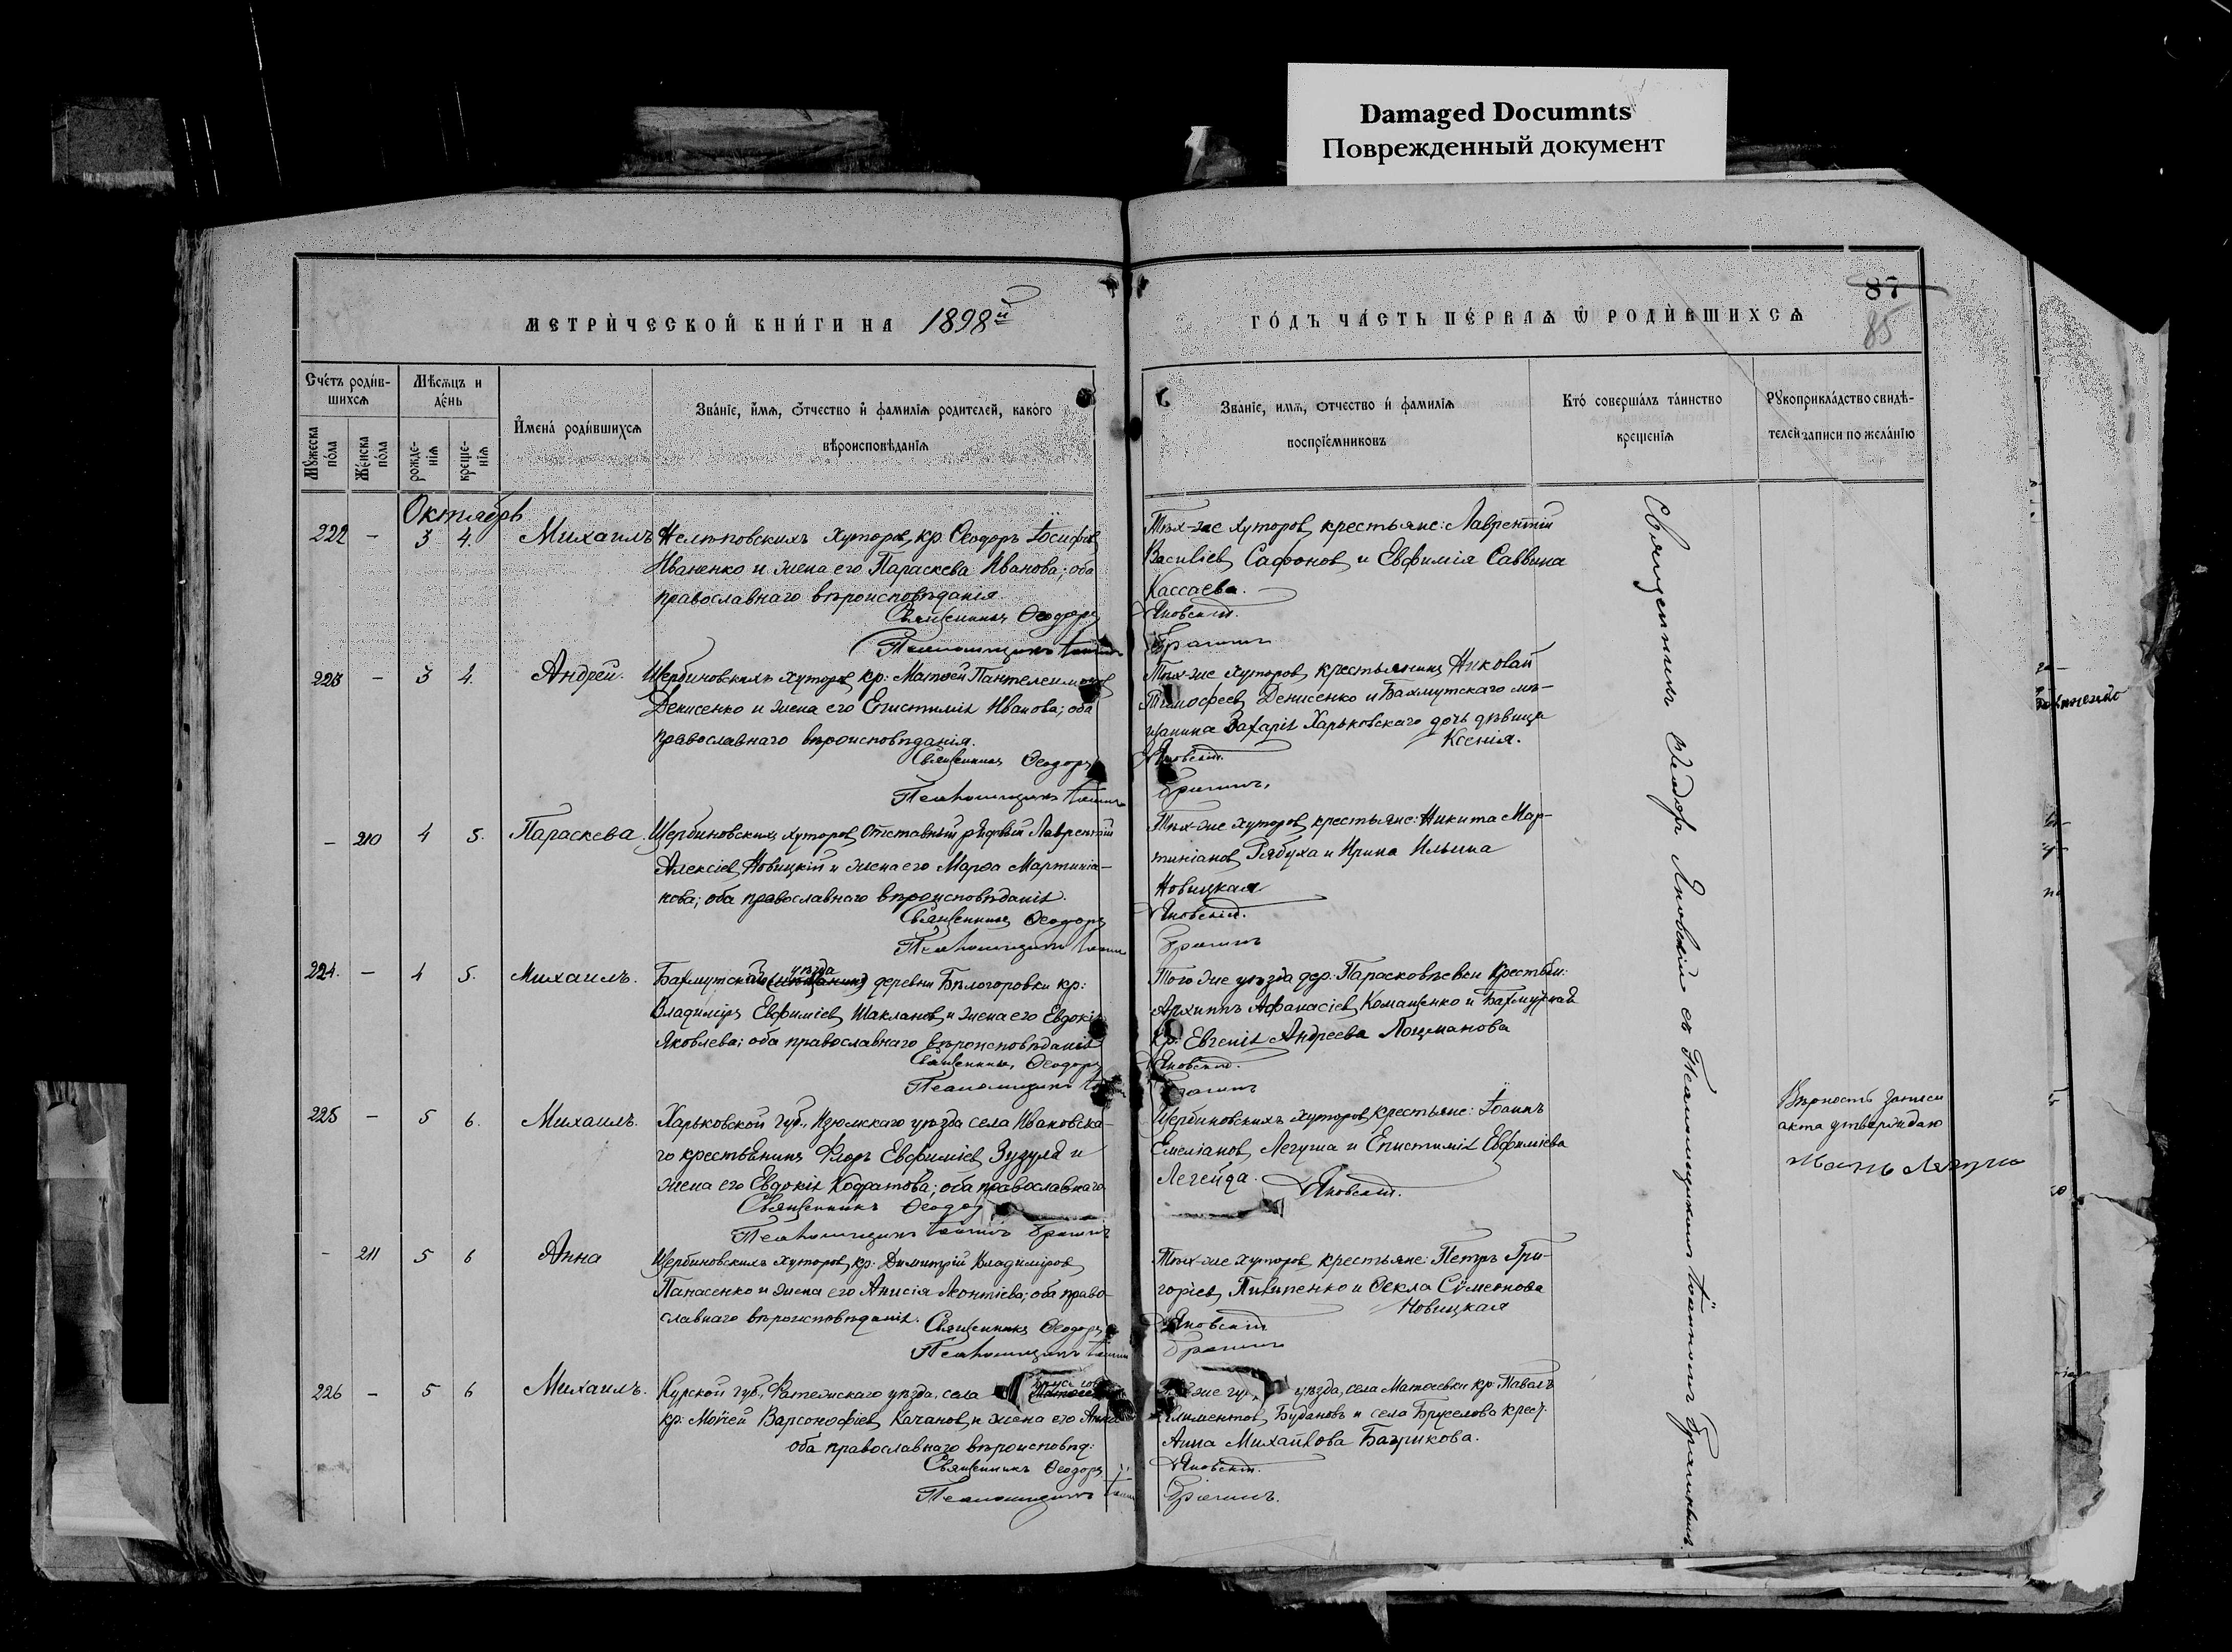 Damaged Documnts
Поврежденный документ
87
85
МЕТРИ́ЧЕСКОЙ КНИ́ГИ НА 1898й
ГО́ДЪ ЧА́СТЬ ПЕ́РВАѦ Ѿ РОДИ́ВШИХСѦ
Сче́тъ роди́в-
шихсѧ
Мѣ́сѧцъ и
де́нь
Мꙋ́жеска
по́ла
Же́нска
по́ла
рожде-
нїѧ
креще-
нїѧ
И҆мена́ роди́вшихсѧ
Зва́нїе, и҆́мѧ, ѻ҆́тчество и҆ фами́лїѧ роди́телей, како́го
вѣроисповѣ́данїѧ
Зва́нїе, и҆́мѧ, ѻ҆́тчество и҆ фами́лїѧ
воспрїе́мниковъ
Кто́ соверша́лъ та́инство
креще́нїѧ
Рꙋкоприкла́дство свидѣ́-
телей записи по жела́нїю
Октябрь
222 – 3 4. Михаилъ Нелѣповскихъ хуторовъ кр. Ѳеодоръ Іосифовъ
Иваненко и жена его Параскева Иванова; оба
православнаго вѣроисповѣданія.
Священникъ Ѳеодоръ
Псаломщикъ Іоаннъ
Тѣхъ-же хуторовъ крестьяне: Лаврентій
Василіевъ Сафоновъ и Евфимія Саввина
Кассаева.
Яновскій.
223 – 3 4. Андрей. Щербиновскихъ хуторовъ кр: Матѳей Пантелеимоновъ
Денисенко и жена его Епистимія Иванова; оба
православнаго вѣроисповѣданія.
Священникъ Ѳеодоръ
Псаломщикъ Іоаннъ
Тѣхъ-же хуторовъ крестьянинъ Николай
Тимоѳеевъ Денисенко и Бахмутскаго мѣ-
щанина Захарія Харьковскаго дочь дѣвица
Ксенія.
Яновскій.
– 210 4 5. Параскева. Щербиновскихъ хуторовъ Отставный рядовый Лаврентій
Алексіевъ Новицкій и жена его Марѳа Мартиніа-
нова; оба православнаго вѣроисповѣданія.
Священникъ Ѳеодоръ
Псаломщикъ Іоаннъ
Тѣхъ-же хуторовъ крестьяне: Никита Мар-
тиніановъ Рябуха и Ирина Ильина
Новицкая
Яновскій.
224. – 4 5. Михаилъ. Бахмутскаго уѣзда деревни Бѣлогоровки кр:
Владиміръ Евфиміевъ Шаклановъ и жена его Евдокія
Яковлева; оба православнаго вѣроисповѣданія
Священникъ Ѳеодоръ
Псаломщикъ
Того же уѣзда дер: Парасковѣевки крестьян:
Архиппъ Афанасіевъ Комащенко и Бахмутская
кр: Евгенія Андреева Лоцманова
Яновскій.
225 – 5 6. Михаилъ. Харьковской губ., Изюмскаго уѣзда села Ивановска-
го крестьянинъ Флоръ Евфиміевъ Зузуля и
жена его Евдокія Кодратова; оба православнаго
Священникъ Ѳеодоръ
Псаломщикъ Іоаннъ
Щербиновскихъ хуторовъ крестьяне: Іоаннъ
Емеліановъ Легуша и Епистимія Евфиміева
Легейда.
Яновскій.
Вѣрность записи
акта утверждаю
– 211 5 6 Анна Щербиновскихъ хуторовъ кр: Димитрій Владиміровъ
Панасенко и жена его Анисія Леонтіева; оба право-
славнаго вѣроисповѣданія.
Священникъ Ѳеодоръ
Псаломщикъ Іоаннъ
Тѣхъ-же хуторовъ крестьяне: Петръ Гри-
горіевъ Пилипенко и Ѳекла Сѵмеонова
Новицкая
Яновскій
226 – 5 6 Михаилъ. Курской губ., Фатежскаго уѣзда, села
кр: Моисей Варсонофіевъ Качановъ и жена его Анна
оба православнаго вѣроисповѣд:
Священникъ Ѳеодоръ
Псаломщикъ
уѣзда, села Матѳеевки кр: Павелъ
Климентовъ Будановъ и села Бруселова крест.
Анна Михайлова Базрикова.
Яновскій.
Священникъ Ѳеодоръ Яновскій съ Псаломщикомъ Іоанномъ